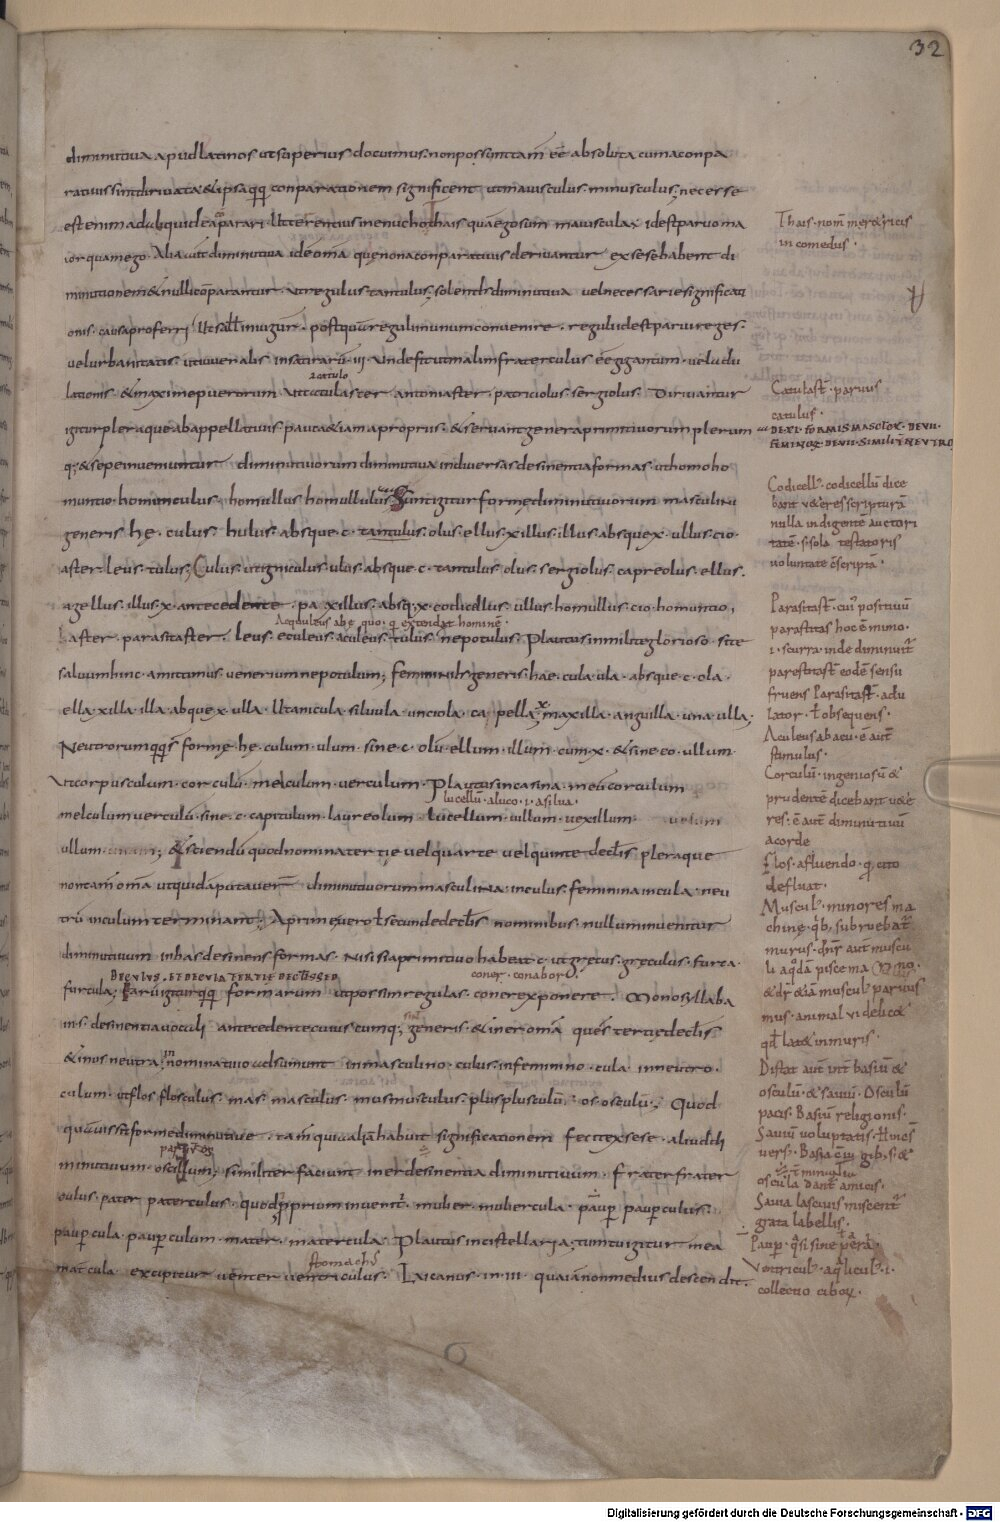 32
diminutiua apud latinos ut superius docuimus. non possunt tam̄ eē absoluta cum a conpa
ratiuis sint diriuata & ipsa q̄q conparationem significent ut maiusculus. minusculus; necesse
est enim ad aliquid ea parari. Ut terentius in eunucho thais quā ego sum maiuscula ÷ id est paruo ma
ior quam ego. Alia autē diminutiua ideō omnia quę non a conparatiuis deriuantur ex sese habent di
minutionem & nulli cōparantur. ut regulus. tantulus; solent diminutiua uel necessariae significati
onis causa proferri. Ut sall̄ in iugur̄. postquā reguli in unum conuenire. reguli id est parui reges.
uel urbanitatis. ut iuuenalis in satirarū .III. unde fit ut malim fraterculus eē gigantum. uel adu
catulo
lationis & maxime puerorum. Ut catulaster antoniaster. patriciolus. sergiolus. Diriuantur
igitur pleraque ab appellatiuis. pauca & iam a propriis. & seruant genera primitiuorum plerum
q; & sepe inueniuntur diminutiuorum diminutiua in diuersas desinentia formas. ut homo ho
muntio. homunculus. homullus homullulus; Sunt igitur formę diminutiuorum masculini
generis hę. culus. hulus. absque .c. tantulus. olus. ellus. xillus. illus. absque x. ullus. cio.
aster. leus. tulus; Culus. ut igniculus. ulus. absque .c. tantulus. olus. sergiolus. capreolus. ellus.
agellus. illus. x. antecedente. paxillus. absq; x. codicillus. ullus. homullus. cio. homuncio,
aster. parasitaster. leus. eculeus. aculeus. tulus. nepotulus. Plautus in milite glorioso. site
saluum hinc amittimus uenerium nepotulum; Feminini generis. hae. cula. ula. absque .c. ola.
ella. xilla. illa. absque x. ulla. Ut anicula. siluula. unciola. capella. maxilla. anguilla. una ulla;
Neutrorum q̄q formę hę. culum. ulum. sine .c. olū. ellum. illum. cum .x. & sine eo. ullum.
Ut corpusculum. corculū. melculum. uerculum. Plautus in casina. meū corculum
lucellū. aluco. i. a silua.
melculum uerculū. sine .c. capitulum. laureolum. lucellum. uillum. uexillum. uelum
ullum; & sciendū quod nomina tertię uel quarte uel quinte decl̄is pleraque
non tam̄ omīa ut quidā putauer̄. diminutiuorum masculina. in culus. feminina in cula. neu
trū in culum terminant; A prime uero l̄ secunde decl̄is nominibus. nullum inuenitur
diminutiuum in has desinens formas. nisi si a primitiuo habeat .c. ut grecus. gręculus. furca.
coner. conabor
furcula; harū igitur q̄q formarum ut possim regulas coner exponere. Monosyllaba
in .s. desinentia uocali antecedente cuiuscumq; generis. & in er omīa quę s̄ tertię decl̄is
& in os neutra. nominatiuo adsumunt in masculino. culus. in feminino. cula. in neutro.
culum. ut flos flosculus. mas. masculus. mus musculus. plus plusculū. os. osculū; Quod
quāuis sit formę diminutiuę. tam̄ qui aliā habuit significationem fecit ex sese aliud di
minutiuum. oscillum; similiter faciunt in er desinentia diminutiuum. frater frater
culus. pater paterculus. quod ꝓprium inuenit̄. mulier muliercula. paup̄ paup̄culus.
paup̄cula. paup̄culum. mater. matercula. Plautus in cistellaria. tum tu igitur mea
stomachꝯ
mat̄cula. excipitur uenter uentriculus. Lucanus .in III. qua iā non medius descendit.
Thais. nom̄ meretricis
in comedus.
Catulast̄. paruus
catulus.
DE XI. FORMIS MASCLOꝜ. DE VII.
FEMINOꝜ. DE VII. SIMILIT̄ NEUTRO
Codicell̄. codicellū dice
bant ueteres scripturā
nulla indigente auctori
tatē. s. sola testatoris
uoluntate c̄scriptā.
Parasitast̄. cui' positiuū
parasitus hoc ē mimo.
i. scurra inde diminuit̄
parasitast̄ eodē sensu
fruens Parasitast̄. adu
lator. l̄ obsequens.
Aculeus ab acu. ē aut̄
stimulus.
Corculū. ingeniosū &
prudentē dicebant uete
res. ē aut̄ diminutiuū
a corde
Flos. a fluendo. q̄ cito
defluat.
Muscul̄. minores ma
chinę. q̄b; subruebat̄
murus. dn̄r aut muscu
li a q̄dā pisce
& dr̄ & iā muscul̄ paruus
mus. animal uidelicet
qd̄ latet in muris.
Distat aut̄ int̄ basiū &
osculū & sauiū. Osculū
pacis. Basiū religionis.
Sauiū uoluptatis.
uers. Basia
oscula dant̄ amicis.
Sauia lasciuis miscent̄
grata labellis.
Paup̄. q̄si sine
Ventricul̄. aq̄liculꝯ. i.
collectio ciboꝝ.
Digitalisierung gefördert durch die Deutsche Forschungsgemeinschaft - DFG